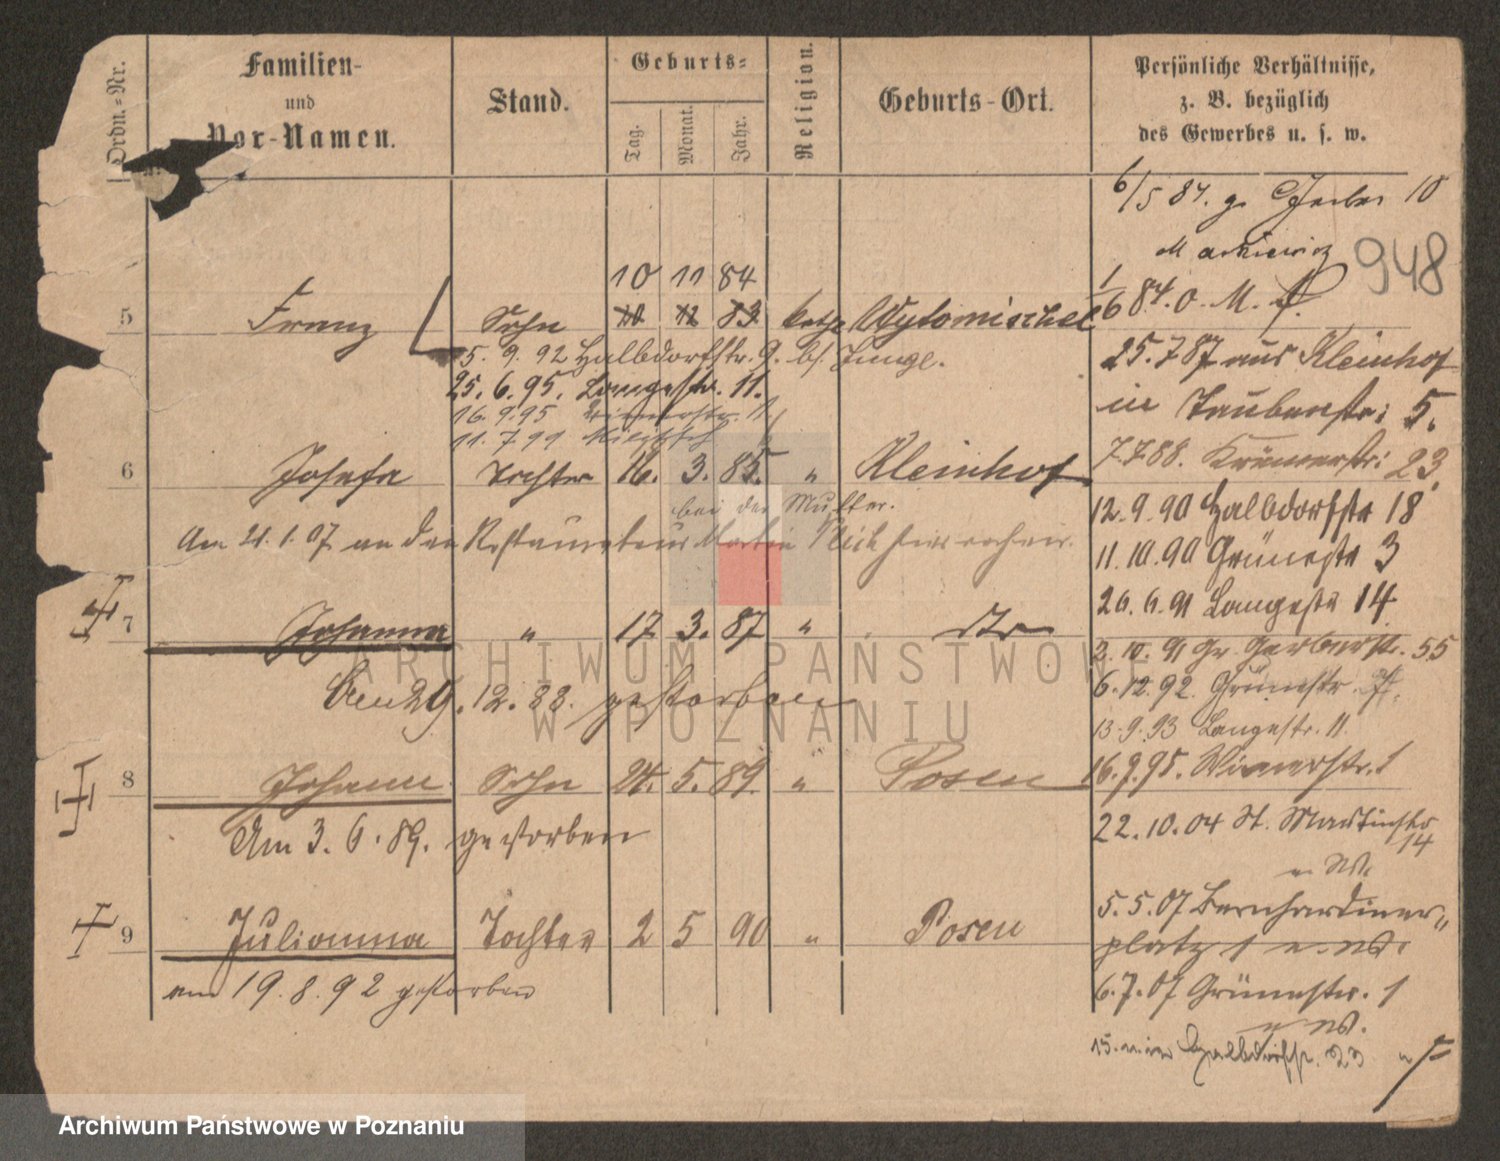 Ordn.-Nr.
Familien-
und
Vor-Namen.
Stand.
Geburts-
Tag.
Monat.
Jahr.
Religion.
Geburts-Ort.
Persönliche Verhältnisse,
z. B. bezüglich
des Gewerbes u. s. w.
6/5 84. Gerber 10
Markiewicz
948
10 11 84
1/6 84. o. M.
5 Franz Sohn 10 12 83 kath Wytomischel
5. 9. 92 Halbdorfstr. 9. b/ Junge.
25. 7 87 aus Kleinhof
25. 6. 95. Langestr. 11.
in Taubenstr: 5.
16. 9 95 Wienerstr. 1
11. 7. 99
7. 7 88. Krämerstr: 23.
6 Josefa Tochter 16. 3. 85. " Kleinhof
bei der Mutter.
12. 9. 90 Halbdorfstr 18
Am 21. 1. 07 an den Restaurateur Martin
11. 10. 90 Grünestr 3
26. 6. 91 Langestr 14
7 Johanna " 17 3. 87 " dto
2. 10. 91 Gr. Gerberstr. 55
den 29. 12. 88. gestorben
6. 12. 92. Grünestr.
13. 9. 93 Langestr. 11.
8 Johann Sohn 24. 5. 89. " Posen
16. 9. 95. Wienerstr. 1
Am 3. 6. 89. gestorben
22. 10. 04 St. Martinstr
14
5. 5. 07 Bernhardiner-
platz 1
9 Julianna Tochter 2 5 90 " Posen
am 19. 8. 92 gestorben
6. 7. 07 Grünestr. 1
Halbdorfstr. 23
ARCHIWUM PAŃSTWOWE
W POZNANIU
Archiwum Państwowe w Poznaniu